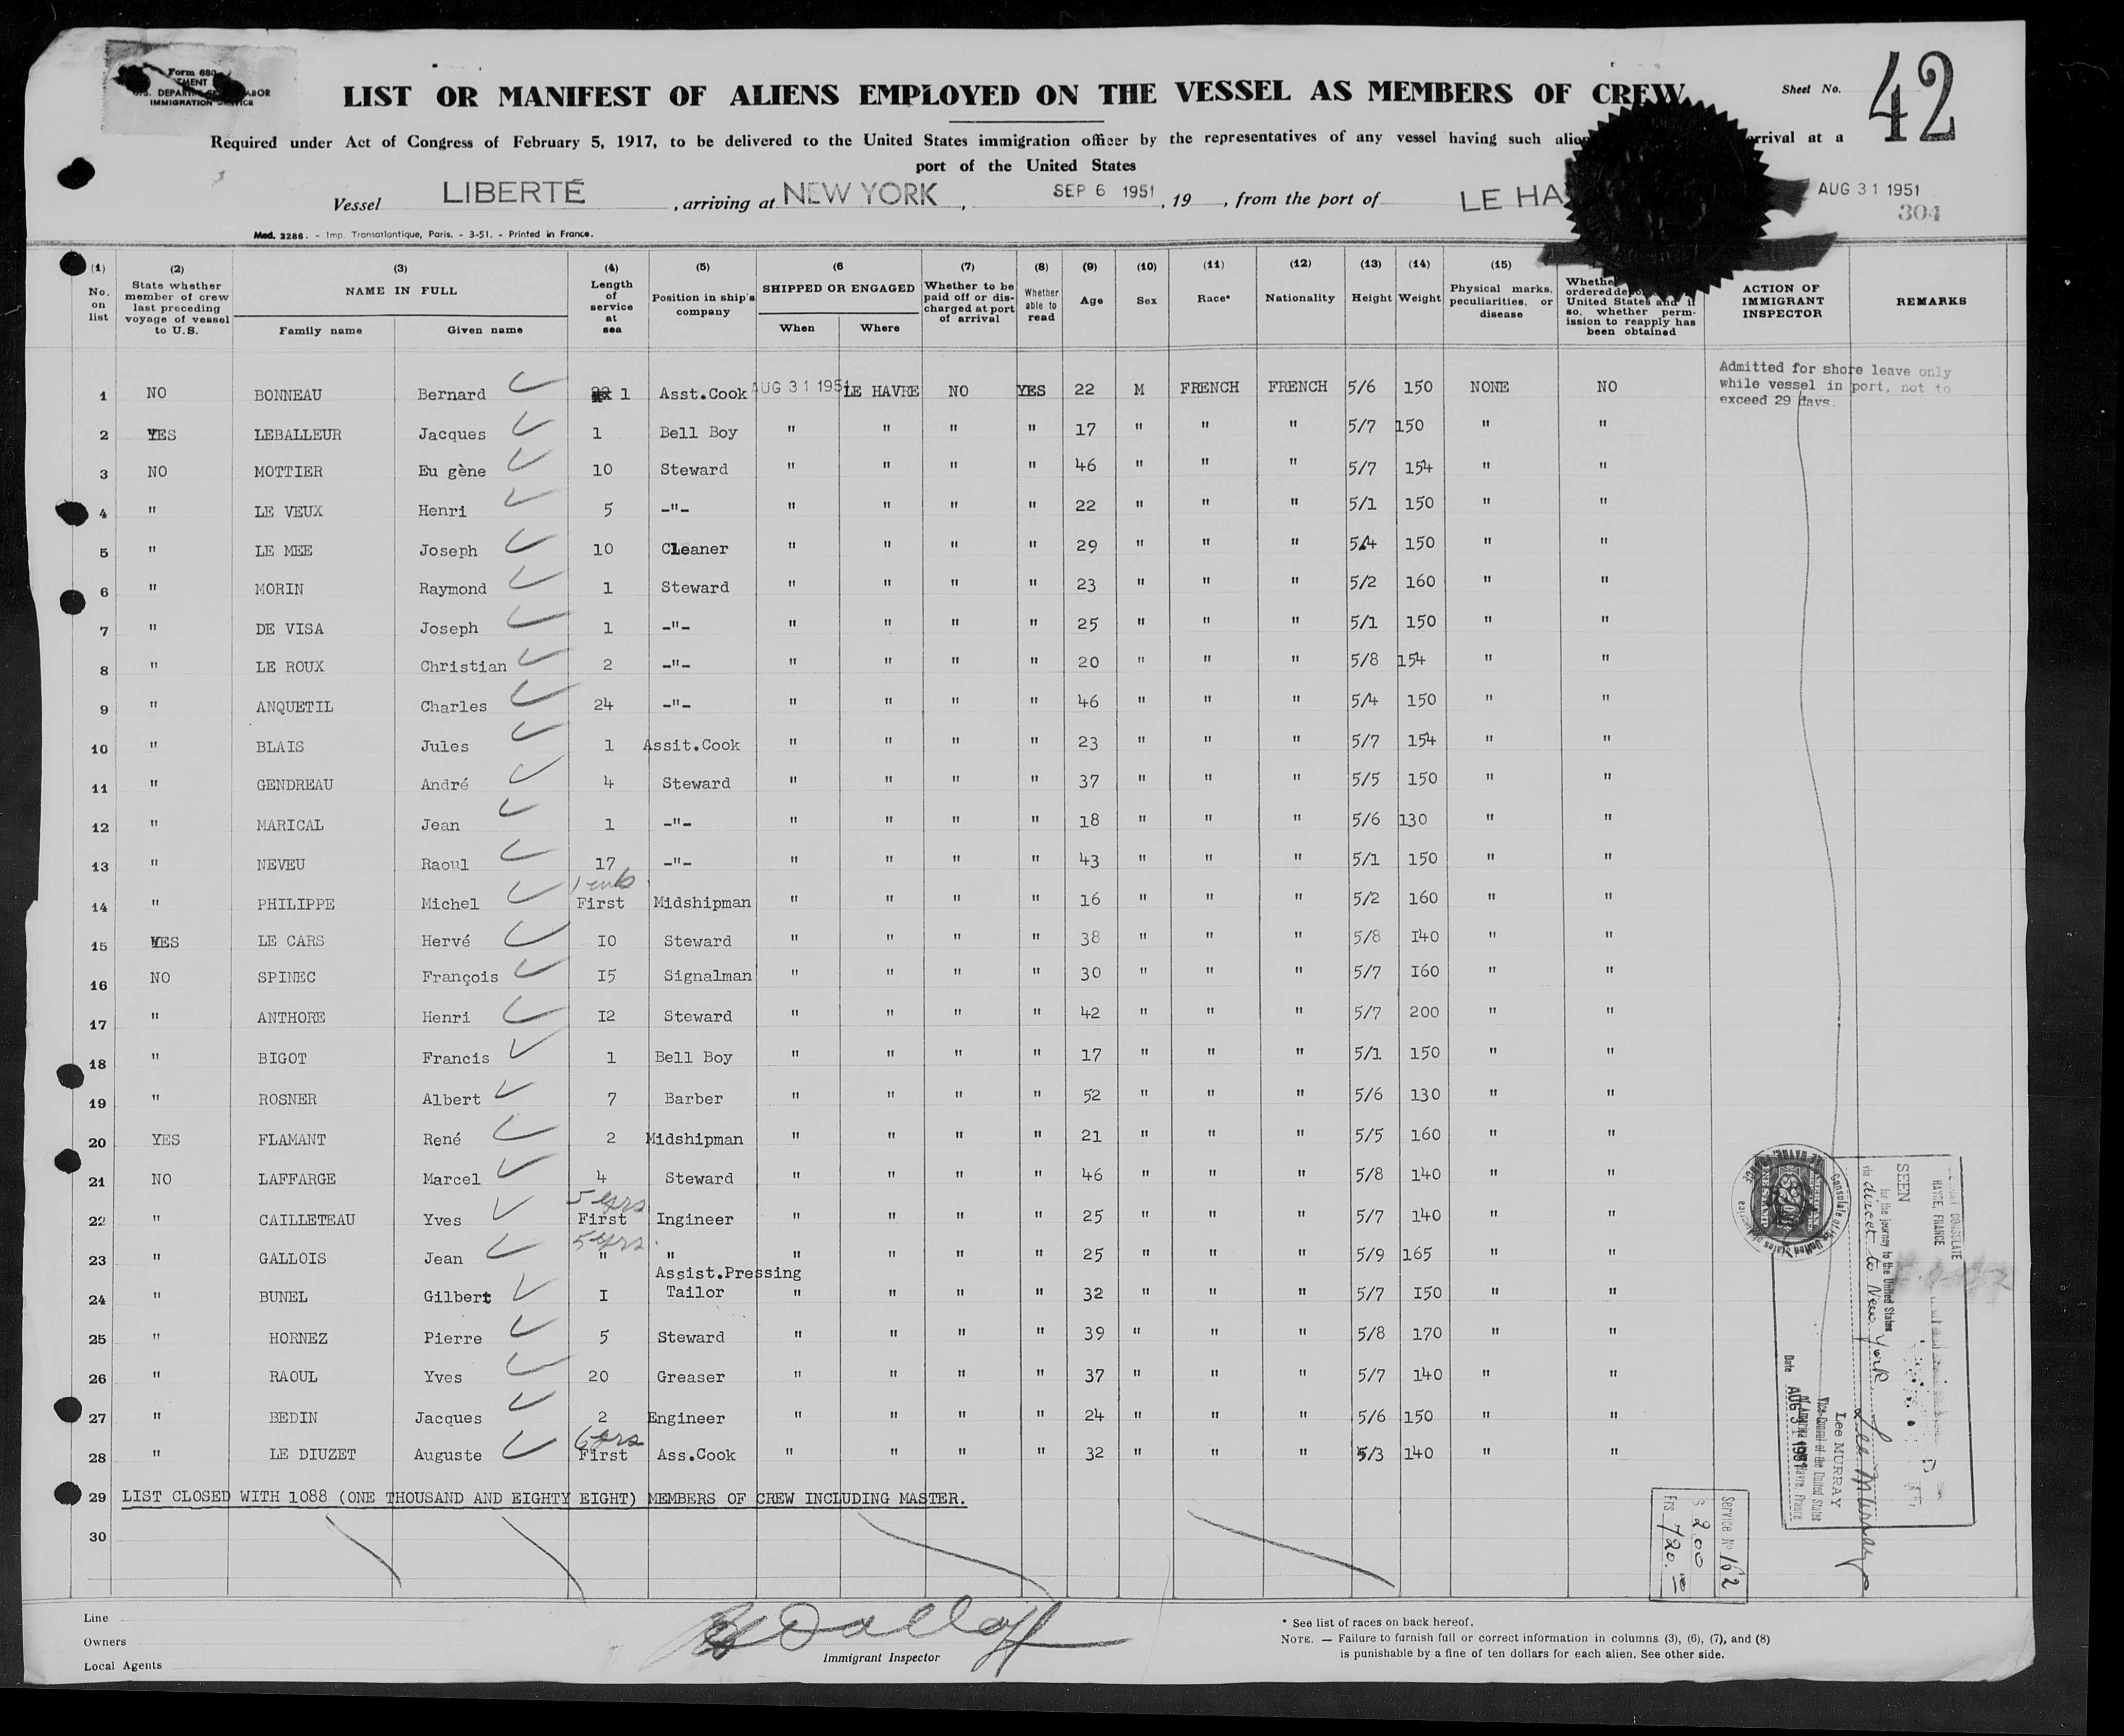 Form 680
U.S. DEPARTMENT OF LABOR
IMMIGRATION SERVICE
LIST OR MANIFEST OF ALIENS EMPLOYED ON THE VESSEL AS MEMBERS OF CREW
Sheet No. 42
Required under Act of Congress of February 5, 1917, to be delivered to the United States immigration officer by the representatives of any vessel having such alie rrival at a
port of the United States
Vessel LIBERTÉ , arriving at NEW YORK , SEP 6 1951 , 19 , from the port of LE HA AUG 31 1951
304
Mod. 2286. - Imp. Transatlantique, Paris. - 3-51. - Printed in France.
(1) No. on list
(2) State whether member of crew last preceding voyage of vessel to U.S.
(3) NAME IN FULL Family name Given name
(4) Length of service at sea
(5) Position in ship's company
(6 SHIPPED OR ENGAGED When Where
(7) Whether to be paid off or discharged at port of arrival
(8) Whether able to read
(9) Age
(10) Sex
(11) Race*
(12) Nationality
(13) Height
(14) Weight
(15) Physical marks, peculiarities, or disease
Whethe ordered depo United States and if so, whether permission to reapply has been obtained
ACTION OF IMMIGRANT INSPECTOR
REMARKS
Admitted for shore leave only
while vessel in port, not to
exceed 29 days.
1 NO BONNEAU Bernard 1 Asst.Cook AUG 31 1951 LE HAVRE NO YES 22 M FRENCH FRENCH 5/6 150 NONE NO
2 YES LEBALLEUR Jacques 1 Bell Boy " " " " 17 " " " 5/7 150 " "
3 NO MOTTIER Eu gène 10 Steward " " " " 46 " " " 5/7 154 " "
4 " LE VEUX Henri 5 -"- " " " " 22 " " " 5/1 150 " "
5 " LE MEE Joseph 10 Cleaner " " " " 29 " " " 5/4 150 " "
6 " MORIN Raymond 1 Steward " " " " 23 " " " 5/2 160 " "
7 " DE VISA Joseph 1 -"- " " " " 25 " " " 5/1 150 " "
8 " LE ROUX Christian 2 -"- " " " " 20 " " " 5/8 154 " "
9 " ANQUETIL Charles 24 -"- " " " " 46 " " " 5/4 150 " "
10 " BLAIS Jules 1 Assit.Cook " " " " 23 " " " 5/7 154 " "
11 " GENDREAU André 4 Steward " " " " 37 " " " 5/5 150 " "
12 " MARICAL Jean 1 -"- " " " " 18 " " " 5/6 130 " "
13 " NEVEU Raoul 17 -"- " " " " 43 " " " 5/1 150 " "
14 " PHILIPPE Michel First Midshipman " " " " 16 " " " 5/2 160 " "
15 YES LE CARS Hervé I0 Steward " " " " 38 " " " 5/8 I40 " "
16 NO SPINEC François I5 Signalman " " " " 30 " " " 5/7 I60 " "
17 " ANTHORE Henri I2 Steward " " " " 42 " " " 5/7 200 " "
18 " BIGOT Francis 1 Bell Boy " " " " 17 " " " 5/1 150 " "
19 " ROSNER Albert 7 Barber " " " " 52 " " " 5/6 130 " "
20 YES FLAMANT René 2 Midshipman " " " " 21 " " " 5/5 160 " "
21 NO LAFFARGE Marcel 4 Steward " " " " 46 " " " 5/8 140 " "
5 yrs
22 " CAILLETEAU Yves First Ingineer " " " " 25 " " " 5/7 140 " "
5 yrs
23 " GALLOIS Jean " " " " " " 25 " " " 5/9 165 " "
Assist.Pressing
24 " BUNEL Gilbert I Tailor " " " " 32 " " " 5/7 I50 " "
25 " HORNEZ Pierre 5 Steward " " " " 39 " " " 5/8 170 " "
26 " RAOUL Yves 20 Greaser " " " " 37 " " " 5/7 140 " "
27 " BEDIN Jacques 2 Engineer " " " " 24 " " " 5/6 150 " "
6 yrs
28 " LE DIUZET Auguste First Ass.Cook " " " " 32 " " " 5/3 140 " "
29 LIST CLOSED WITH 1088 (ONE THOUSAND AND EIGHTY EIGHT) MEMBERS OF CREW INCLUDING MASTER.
30
CONSULATE
HAVRE, FRANCE
SEEN
for the journey to the United States
via direct to New York
Lee Murray
Lee MURRAY
Vice-Consul of the United States
of America Havre, France
Date AUG 31 1951
Consulate of the United States of America
LE HAVRE, FRANCE
$2.00
Service No 162
$ 2.00
Frs 720.
Line
Owners
Local Agents
Immigrant Inspector
* See list of races on back hereof.
NOTE. — Failure to furnish full or correct information in columns (3), (6), (7), and (8)
is punishable by a fine of ten dollars for each alien. See other side.